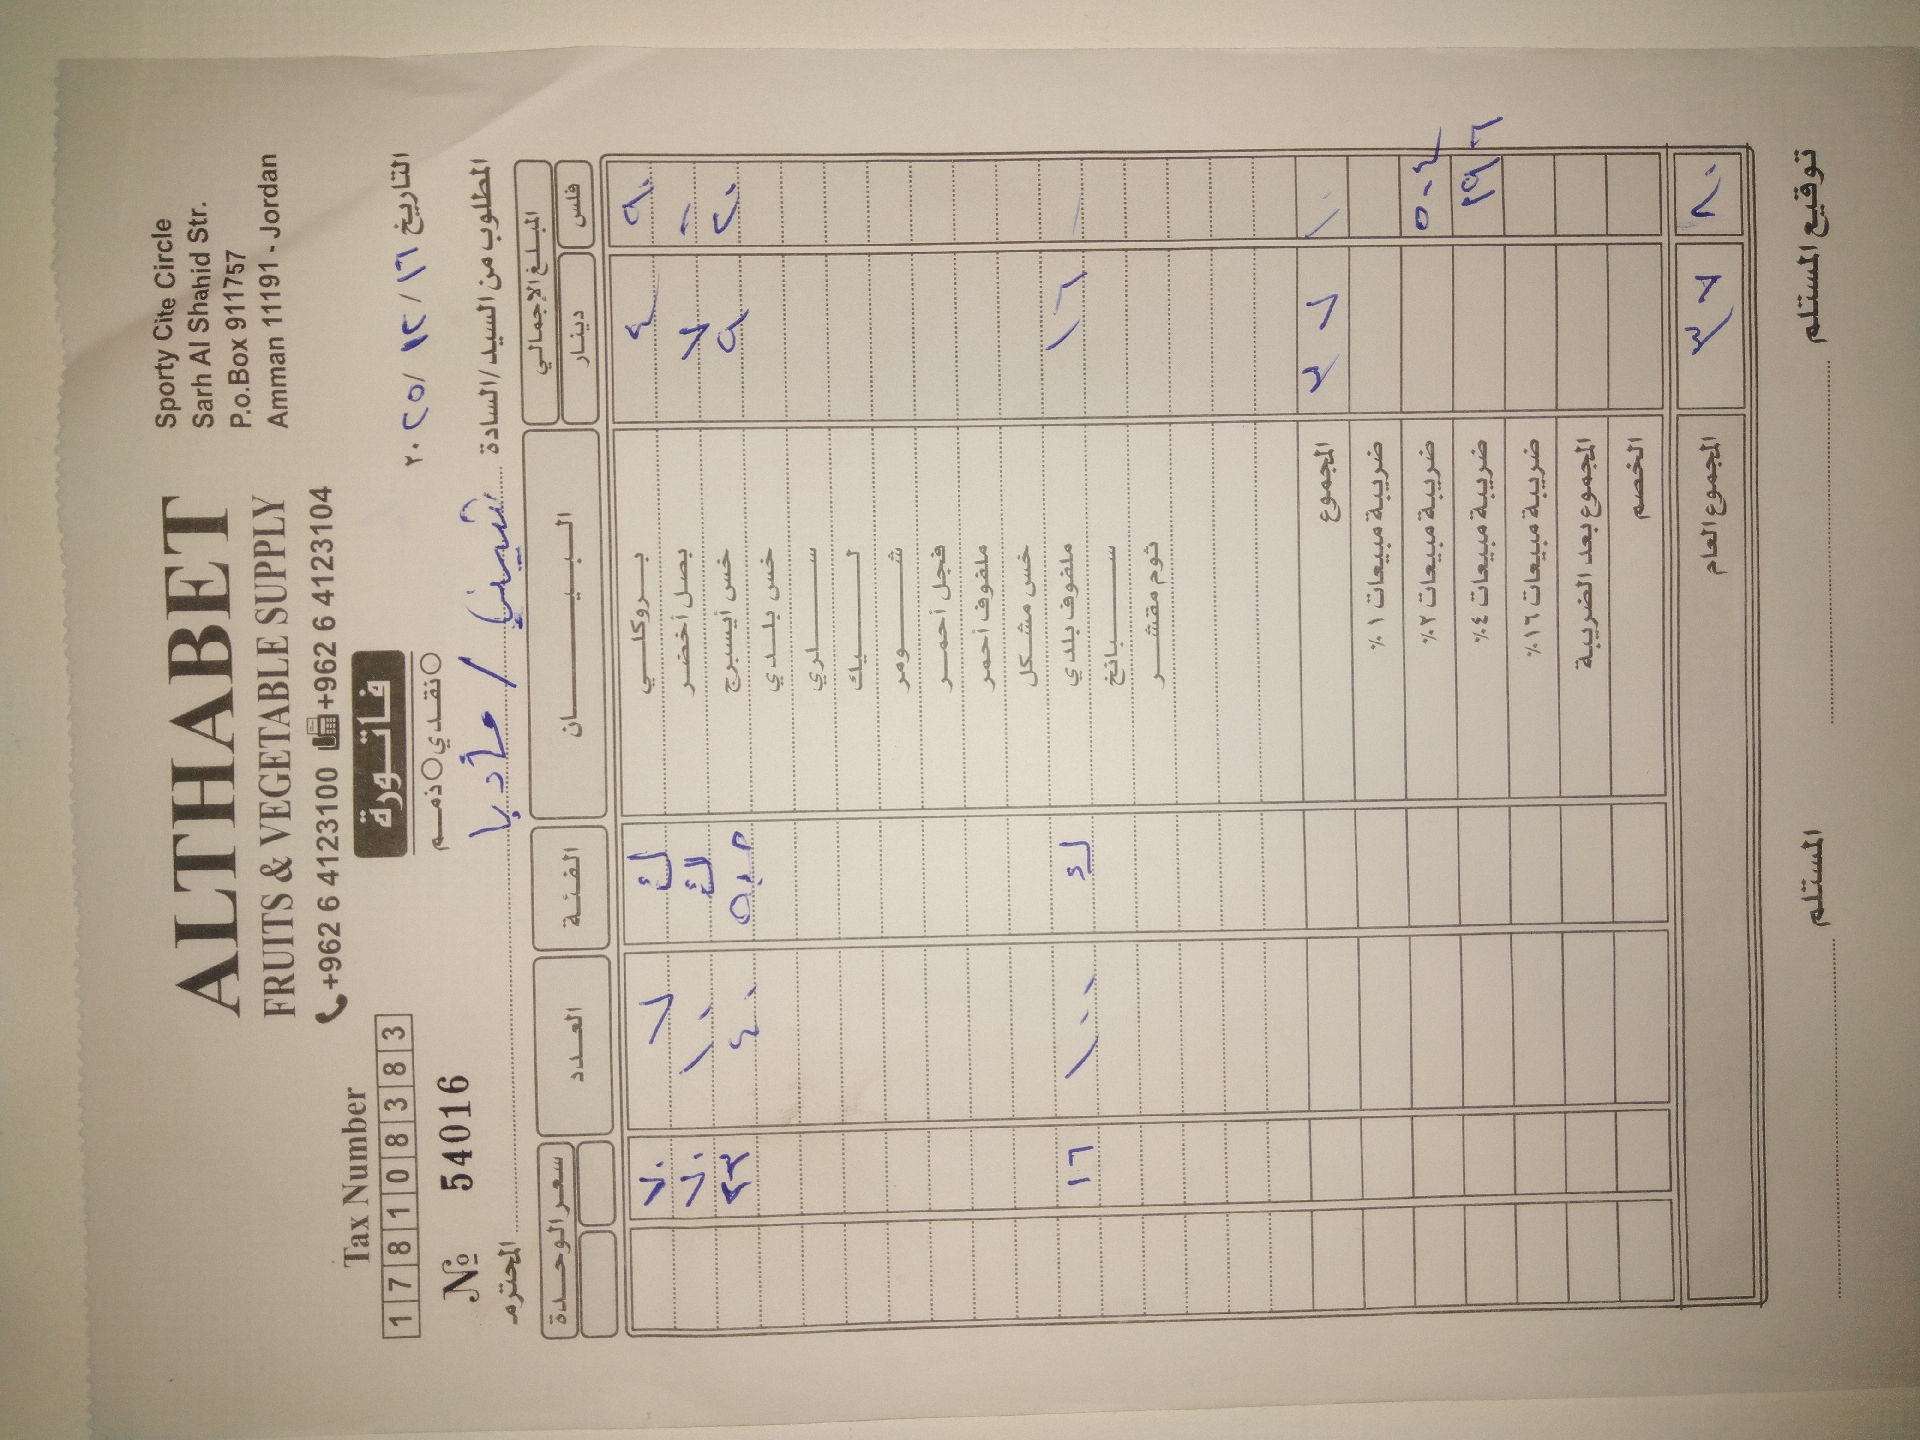 ALTHABET
FRUITS & VEGETABLE SUPPLY
+962 6 4123100 +962 6 4123104
Sporty Cite Circle
Sarh Al Shahid Str.
P.o.Box 911757
Amman 11191 - Jordan
Tax Number
1 7 8 1 0 8 3 8 3
فاتورة
نقدي ذمم
№ 54016
التاريخ ١٦ / ١٢ / ٢٠٢٥
المطلوب من السيد/السادة / مأدبا المحترم
المبلغ الإجمالي البيان الفئة العدد سعر الوحدة
فلس دينار
٩٠ ٤ بروكلي ك ٧ ٧٠
-- ٧ بصل أخضر ك ١٠ ٧٠
٢٠ ٩ خس أيسبرج حبة ٤٠ ٢٣
خس بلدي
سلري
ليك
شومر
فجل أحمر
ملفوف أحمر
خس مشكل
- ١٦ ملفوف بلدي ك ١٠٠ ١٦
سبانخ
ثوم مقشر
١٠ ٣٧ المجموع
ضريبة مبيعات ١%
٥٠٤ ضريبة مبيعات ٢%
١٩٦ ضريبة مبيعات ٤%
ضريبة مبيعات ١٦%
المجموع بعد الضريبة
الخصم
٨٠ ٣٧ المجموع العام
توقيع المستلم المستلم